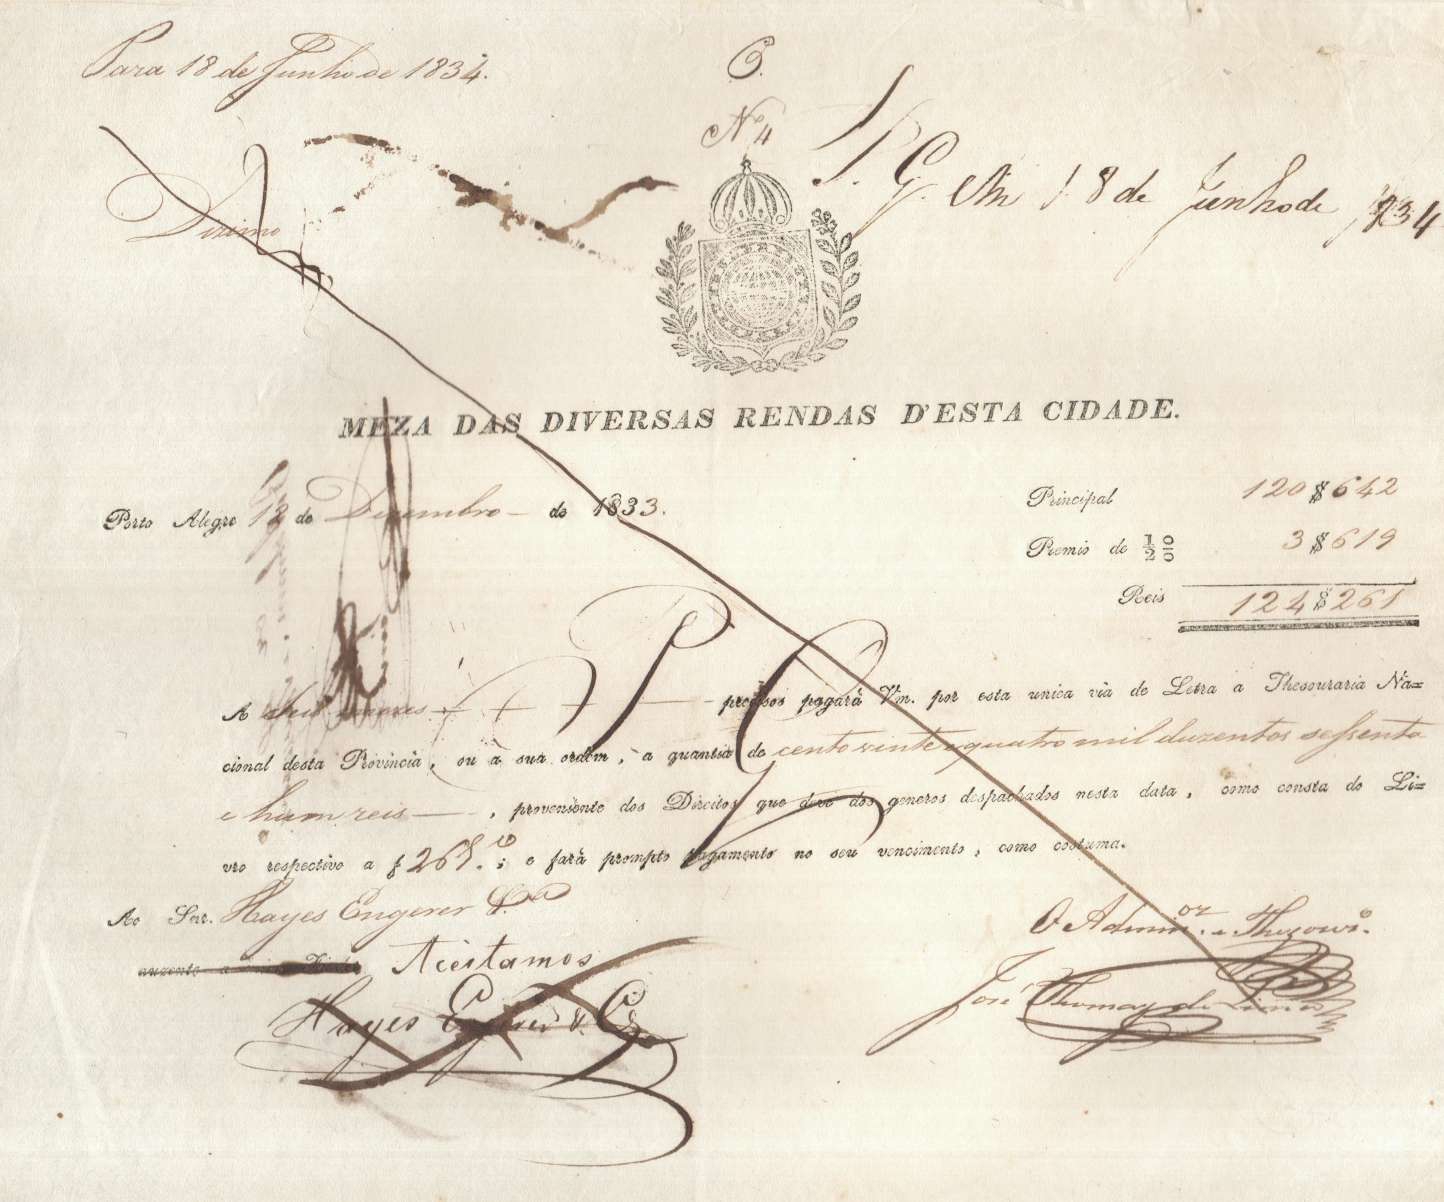 Para 18 de Junho de 1834.
C.
Nº 4
P. G. em 18 de Junho de 1834
Dizimo
MEZA DAS DIVERSAS RENDAS D'ESTA CIDADE.
Porto Alegre 12 de Dezembro de 1833.
Principal 120$642
Premio de 1/2 0/0 3$619
Reis 124$261
PG
A seis mezes precisos pagará Vm. por esta unica via de Letra a Thesouraria Na=
cional desta Provincia, ou á sua ordem, a quantia de cento vinte e quatro mil duzentos sessenta
e hum reis, proveniente dos Direitos que deve dos generos despachados nesta data, como consta do Li=
vro respectivo a f 268.; e fará prompto pagamento no seu vencimento, como costuma.
Ao Snr. Hayes Engerer & Cª
auzente a
Aceitamos
Hayes Engerer & Cª
O Admin.or e Thezour.o
José Thomaz de Lima